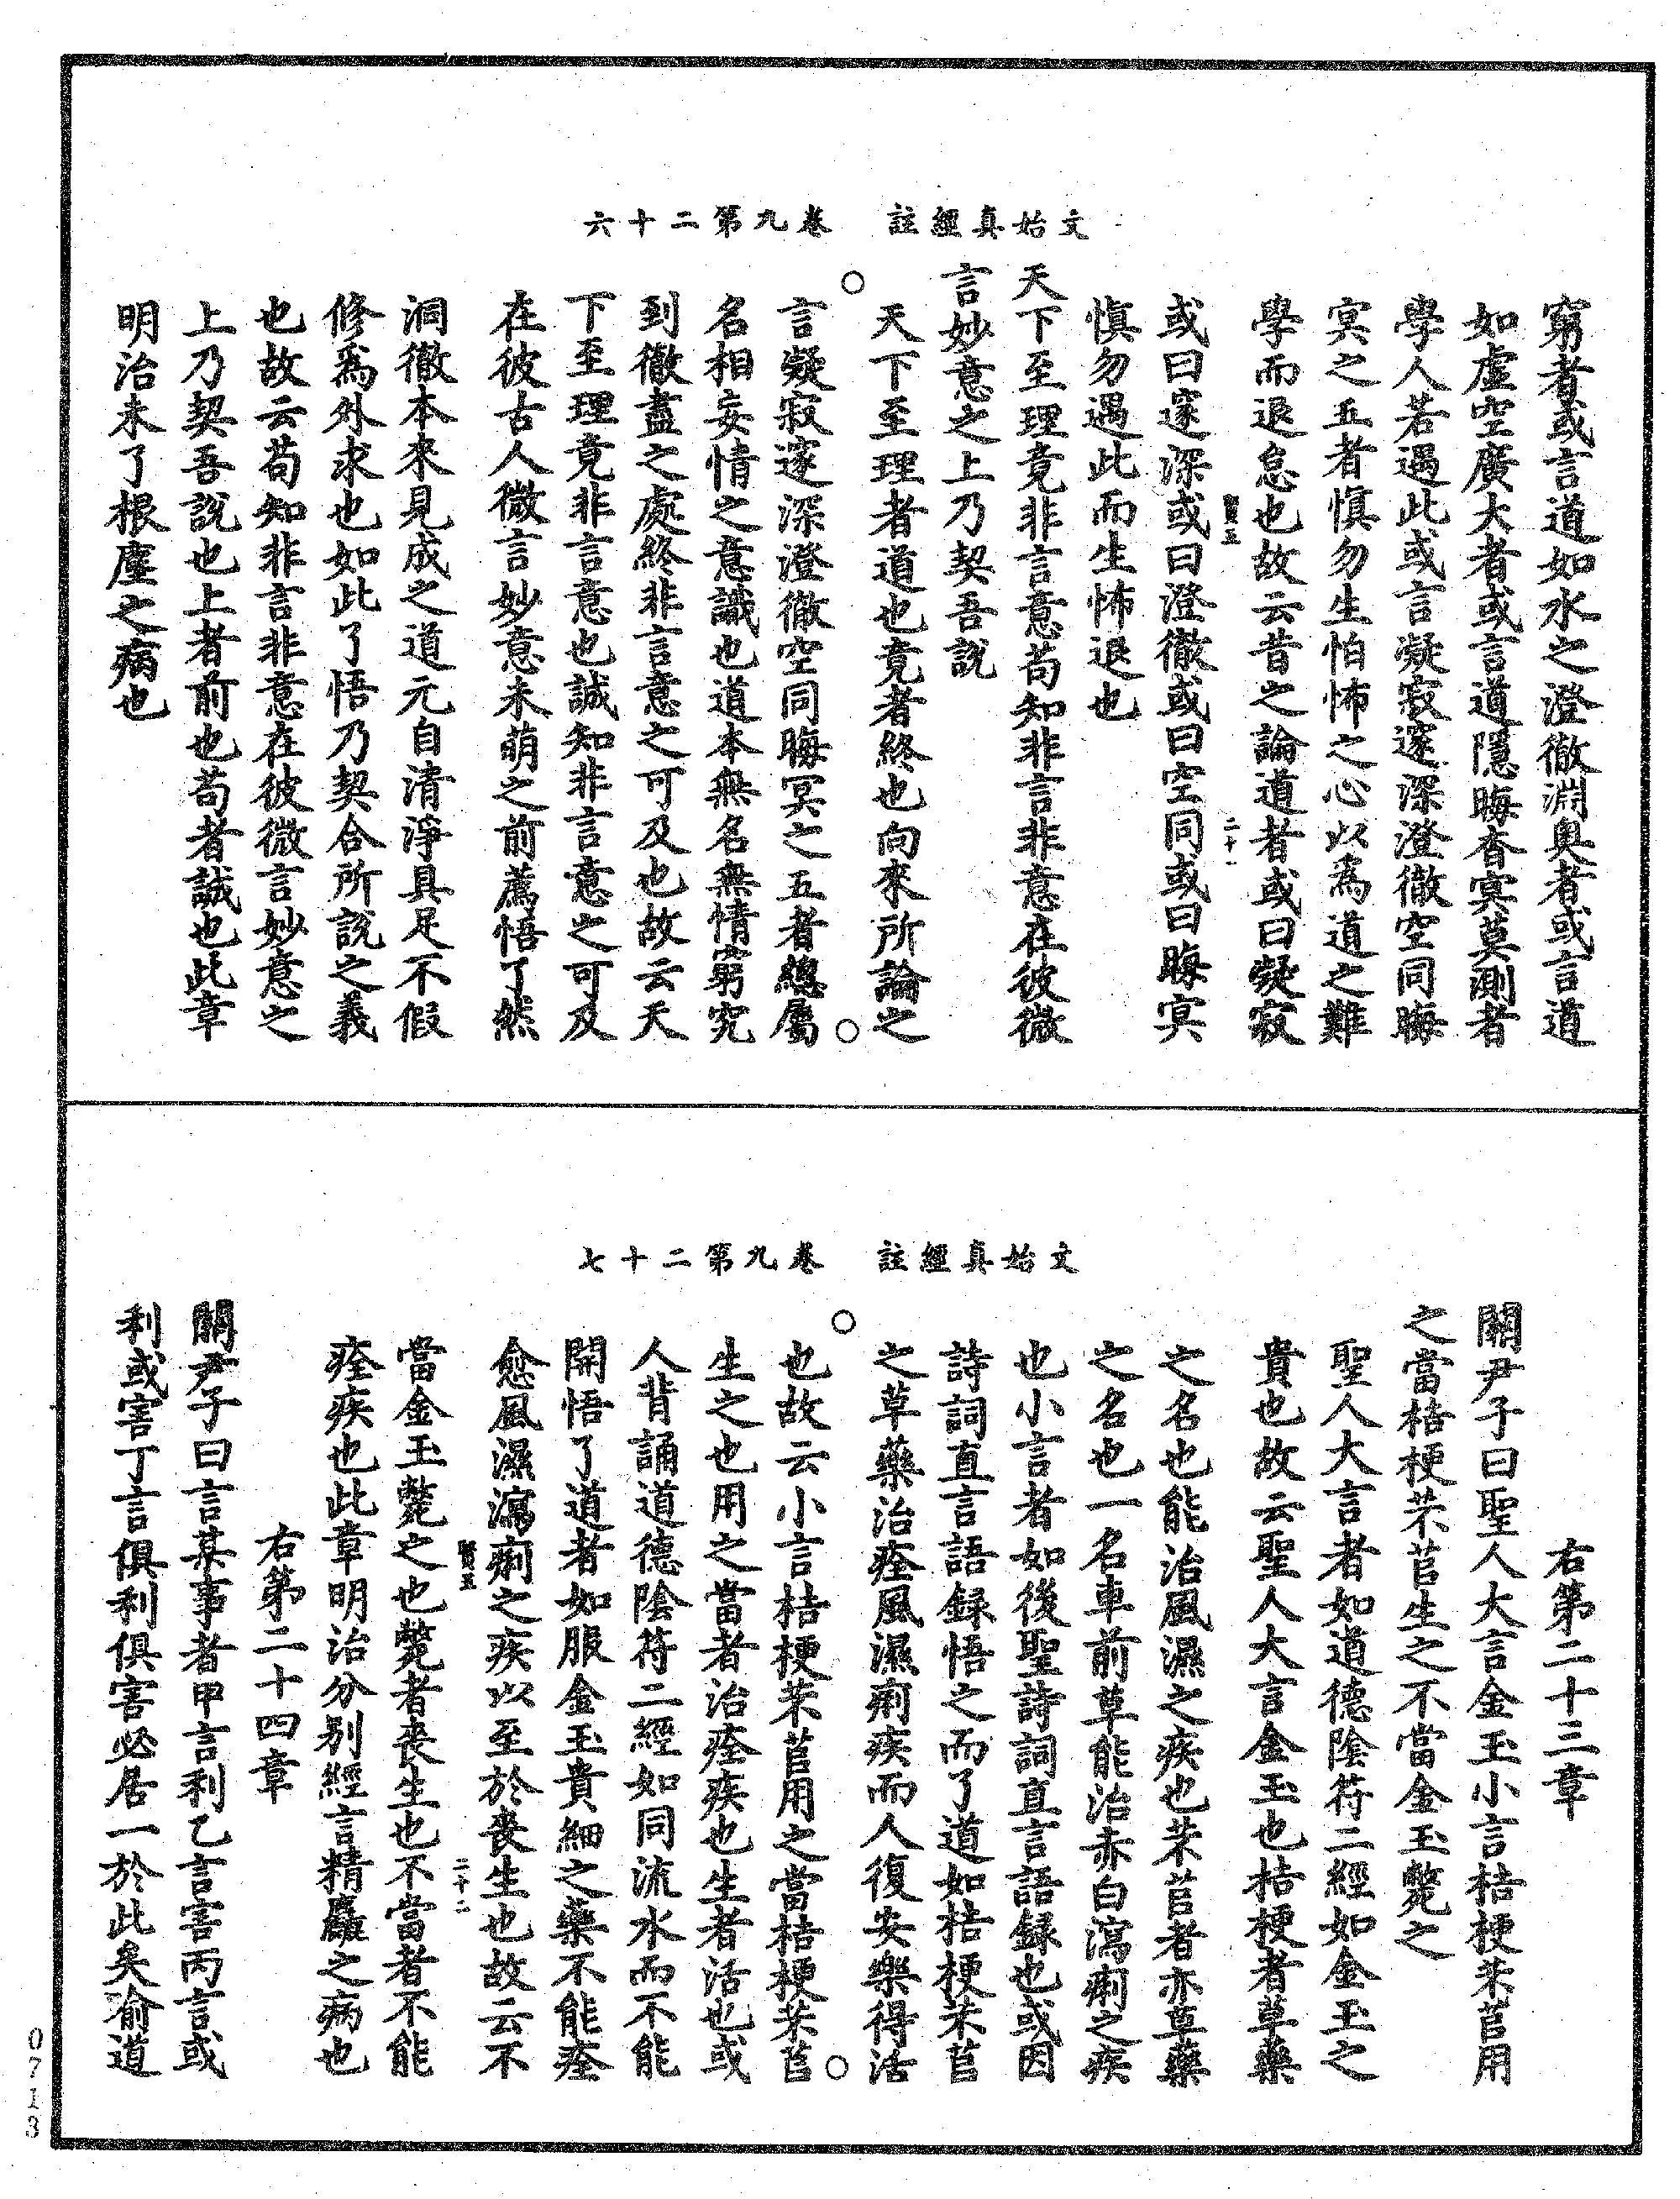 文始真經註　卷九第二十六
窮者或言道如水之澄徹淵奧者或言道
如虛空廣大者或言道隱晦杳冥莫測者
學人若遇此或言凝寂邃深澄徹空同晦
冥之五者慎勿生怕怖之心以為道之難
學而退怠也故云昔之論道者或曰凝寂
賢五　二十一
或曰邃深或曰澄徹或曰空同或曰晦冥
慎勿遇此而生怖退也
天下至理竟非言意苟知非言非意在彼微
言妙意之上乃契吾說
天下至理者道也竟者終也向來所論之
言凝寂邃深澄徹空同晦冥之五者總屬
名相妄情之意識也道本無名無情窮究
到徹盡之處終非言意之可及也故云天
下至理竟非言意也誠知非言意之可及
在彼古人微言妙意未萌之前薦悟了然
洞徹本來見成之道元自清淨具足不假
修爲外求也如此了悟乃契合所說之義
也故云苟知非言非意在彼微言妙意之
上乃契吾說也上者前也苟者誠也此章
明治未了根塵之病也
文始真經註　卷九第二十七
右第二十三章
關尹子曰聖人大言金玉小言桔梗芣苢用
之當桔梗芣苢生之不當金玉斃之
聖人大言者如道德陰符二經如金玉之
貴也故云聖人大言金玉也桔梗者草藥
之名也能治風濕之疾也芣苢者亦草藥
之名也一名車前草能治赤白瀉痢之疾
也小言者如後聖詩詞直言語録也或因
詩詞直言語録悟之而了道如桔梗芣苢
之草藥治痊風濕痢疾而人復安樂得活
也故云小言桔梗芣苢用之當桔梗芣苢
生之也用之當者治痊疾也生者活也或
人背誦道德陰符二經如同流水而不能
開悟了道者如服金玉貴細之藥不能痊
愈風濕瀉痢之疾以至於丧生也故云不
賢五　二十二
當金玉斃之也斃者丧生也不當者不能
痊疾也此章明治分别經言精麤之病也
右第二十四章
關尹子曰言某事者甲言利乙言害丙言或
利或害丁言俱利俱害必居一於此矣喻道
0713